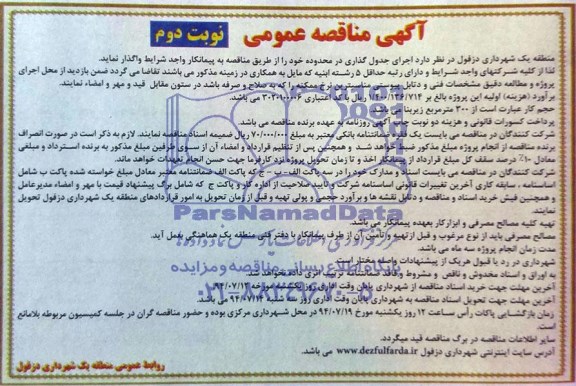 آگهی مناقصه عمومی نوبت دوم
منطقه یک شهرداری دزفول در نظر دارد اجرای جدول گذاری در محدوده خود را از طریق مناقصه به پیمانکار واجد شرایط واگذار نماید.
لذا از کلیه شرکتهای واجد شرایط و دارای رتبه حداقل ۵ رشته ابنیه که مایل به همکاری در زمینه مذکور می باشند تقاضا می گردد ضمن بازدید از محل اجرای
پروژه و مطالعه دقیق مشخصات فنی و نرخ که به صلاح و صرفه باشد در ستون مقابل قید و مهر و امضاء نمایند.
برآورد هزینه اولیه این پروژه بالغ بر ریال با کد اعتباری می باشد.
حجم کار عبارت است از ۳۰۰ مترمربع زیربنا می باشد.
پرداخت کسورات قانونی و هزینه دو نوبت چاپ آگهی روزنامه به عهده برنده مناقصه می باشد.
شرکت کنندگان در مناقصه می بایست یک فقره ضمانتنامه بانکی معتبر به مبلغ ۷۰/۰۰۰/۰۰۰ ریال ضمیمه اسناد مناقصه نمایند. لازم به ذکر است در صورت انصراف
برنده مناقصه از انجام پروژه مبلغ مذکور ضبط خواهد شد و همچنین پس از تنظیم قرارداد و امضاء آن از سوی طرفین مبلغ مذکور به برنده استرداد و مبلغی
معادل ۱۰٪ درصد سقف کل مبلغ قرارداد از پیمانکار اخذ و تا زمان تحویل پروژه نزد کارفرما جهت حسن انجام تعهدات خواهد ماند.
شرکت کنندگان در مناقصه می بایست اسناد و مدارک خود را در سه پاکت الف - ب - ج که پاکت الف ضمانتنامه معتبر معادل مبلغ خواسته شده پاکت ب شامل
اساسنامه ، سابقه کاری آخرین تغییرات قانونی اساسنامه شرکت و تایید صلاحیت از اداره کار و پاکت ج که شامل برگ پیشنهاد قیمت با مهر و امضاء مدیرعامل
و همچنین فیش خرید اسناد و مناقصه و دفایل نقشه ها و برآورد حجمی و پولی تهیه و قبل از زمان تحویل به امور قراردادهای منطقه یک شهرداری دزفول تحویل
نمایند.
تهیه کلیه مصالح مصرفی و ابزارکار بعهده پیمانکار می باشد.
مصالح مصرفی باید از نوع مرغوب و قبل از تهیه و تامین آن از طرف پیمانکار با دفتر فنی منطقه یک هماهنگی بعمل آید.
مدت زمان انجام پروژه سه ماه می باشد.
شهرداری در رد یا قبول هریک از پیشنهادات واصله مختار است.
به اوراق و اسناد مخدوش و ناقص و مشروط و فاقد ضمانتنامه ترتیب اثری داده نخواهد شد.
آخرین مهلت جهت خرید اسناد مناقصه از شهرداری پایان وقت اداری روز یکشنبه مورخه ۹۴/۰۷/۱۲
آخرین مهلت جهت تحویل اسناد مناقصه به شهرداری پایان وقت اداری روز سه شنبه ۹۴/۰۷/۱۴ می باشد.
زمان بازگشایی پاکات رأس ساعت ۱۲ روز یکشنبه مورخ ۹۴/۰۷/۱۹ در محل شهرداری مرکزی بوده و حضور مناقصه گران در جلسه کمیسیون مربوطه بلامانع
است.
سایر اطلاعات مناقصه در برگ مناقصه قید میگردد.
آدرس سایت اینترنتی شهرداری دزفول www.dezfulfarda.ir می باشد.
روابط عمومی منطقه یک شهرداری دزفول
ParsNamadData
پایگاه اطلاع رسانی مناقصه و مزایده